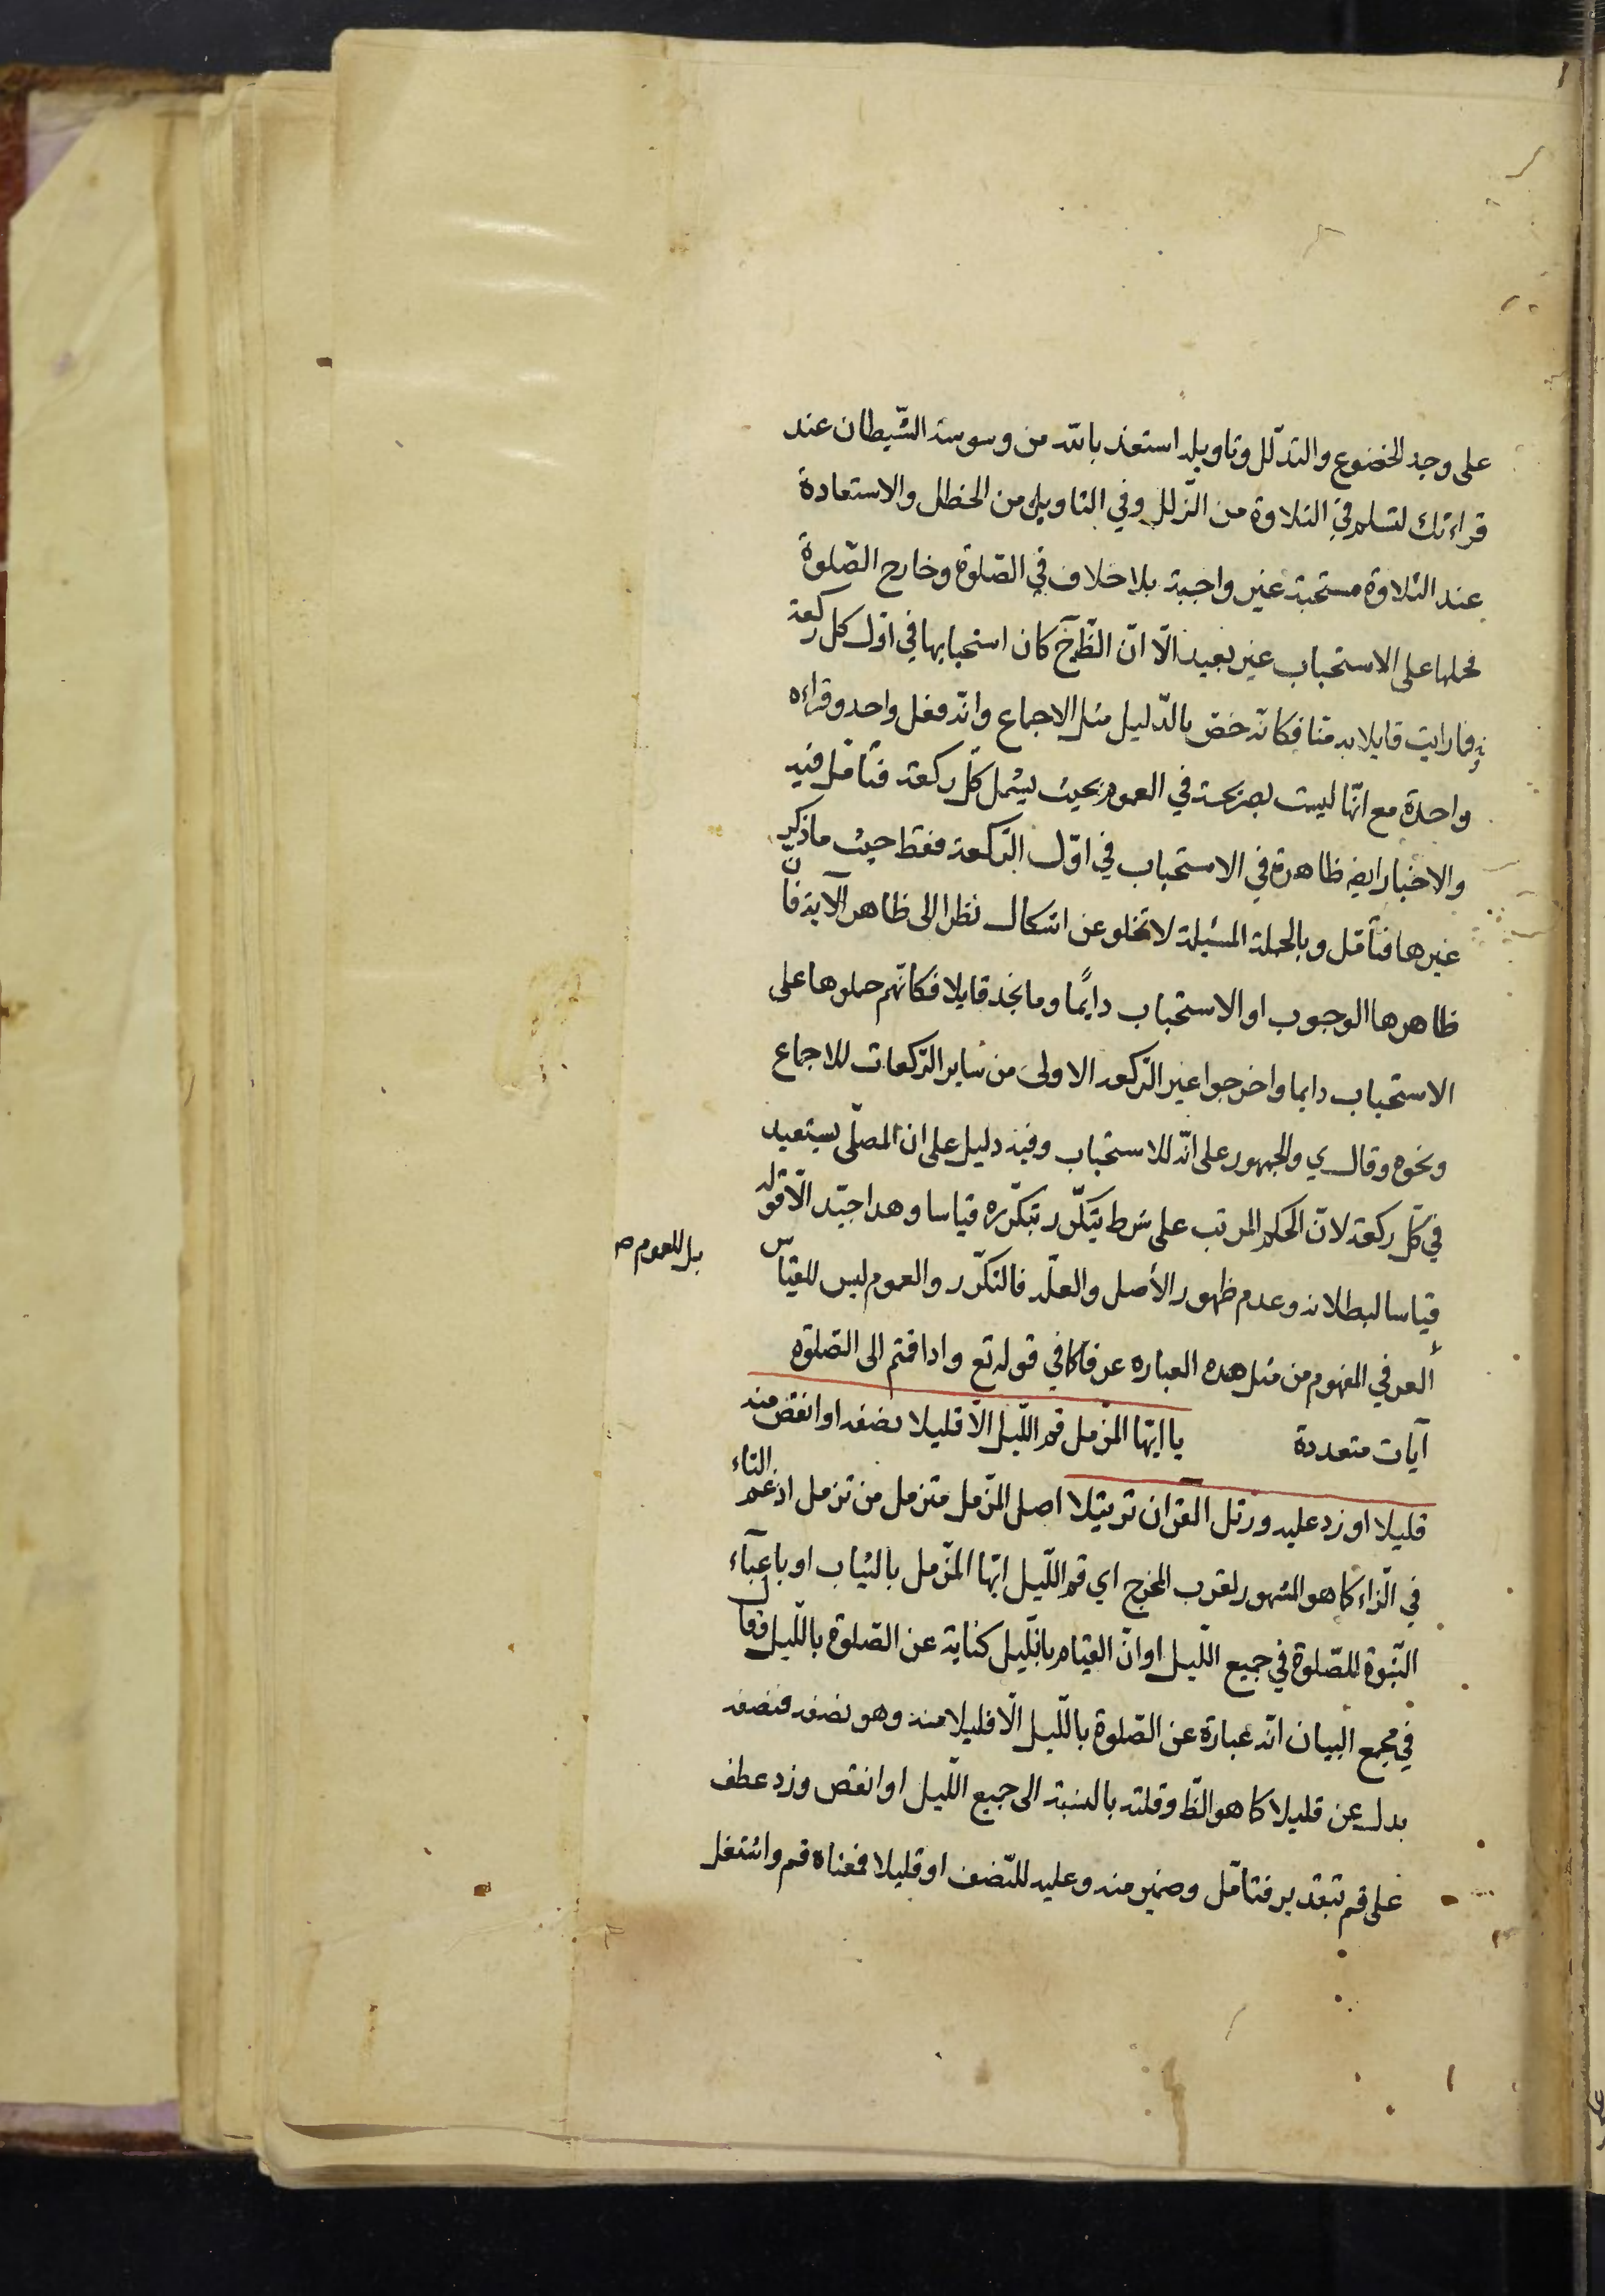 على وجه الخضوع والتذلّل وتاويله استعذ بالله من وسوسة الشّيطان عند
قراءتك لتسلم في التلاوة من الزّلل وفي التاويل من الخطل والاستعاذة
عند التلاوة مستحبة غير واجبة بلا خلاف في الصّلوة وخارج الصّلوة
فحملها على الاستحباب غير بعيد الّا انّ الظّ ح كان استحبابها في اوّل كل ركعة
فما رايت قايلا به منّا فكانّه خصّ بالدّليل مثل الاجماع وانّه فعل واحد وقراءه
واحدة مع انّها ليست بصريحة في العموم بحيث يشمل كلّ ركعة فتامّل فيه
والاخبار ايضا ظاهرة في الاستحباب في اوّل الرّكعة فقط حيث ما ذكر
غيرها فتأمّل وبالجملة المسئلة لا تخلو عن اشكال نظرا الى ظاهر الآية فانّ
ظاهرها الوجوب او الاستحباب دايمًا وما نجد قايلا فكانّهم حملوها على
الاستحباب دايما واخرجوا غير الرّكعة الاولى من ساير الرّكعات للاجماع
ونحوه وقال ي والجمهور على انّه للاستحباب وفيه دليل على ان المصلّى يستعيذ
في كلّ ركعة لانّ الحكم المرتب على شرط يتكّرر بتكّرره قياسا وهذا جيّد الّا قوله
قياسا لبطلانه وعدم ظهور الأصل والعلّة فالتكّرر والعموم ليس للقياس
بل للعموم صح
العرفي المفهوم من مثل هذه العباره عرفا كما في قوله تع واذا قمتم الى الصّلوة
آيات متعددة يا ايّها المزّمل قم اللّيل الّا قليلا نصفه او انقص منه
قليلا او زد عليه ورتل القران ترتيلا اصل المزّمل متزمل من تزمل ادغم التاء
في الزّاء كما هو المشهور لقرب المخرج اي قم اللّيل ايّها المزّمل بالثياب او باعباء
النّبوة للصّلوة في جميع اللّيل او انّ القيام بالليل كناية عن الصّلوة باللّيل فقال
في مجمع البيان انّه عبارة عن الصّلوة باللّيل الّا قليلا منه وهو نصفه فنصفه
بدل عن قليلا كما هو الظّ وقلته بالنسبة الى جميع اللّيل او انقص وزد عطف
على قم بتقدير فتأمّل وضمير منه وعليه للنّصف او قليلا فمعناه قم واشتغل